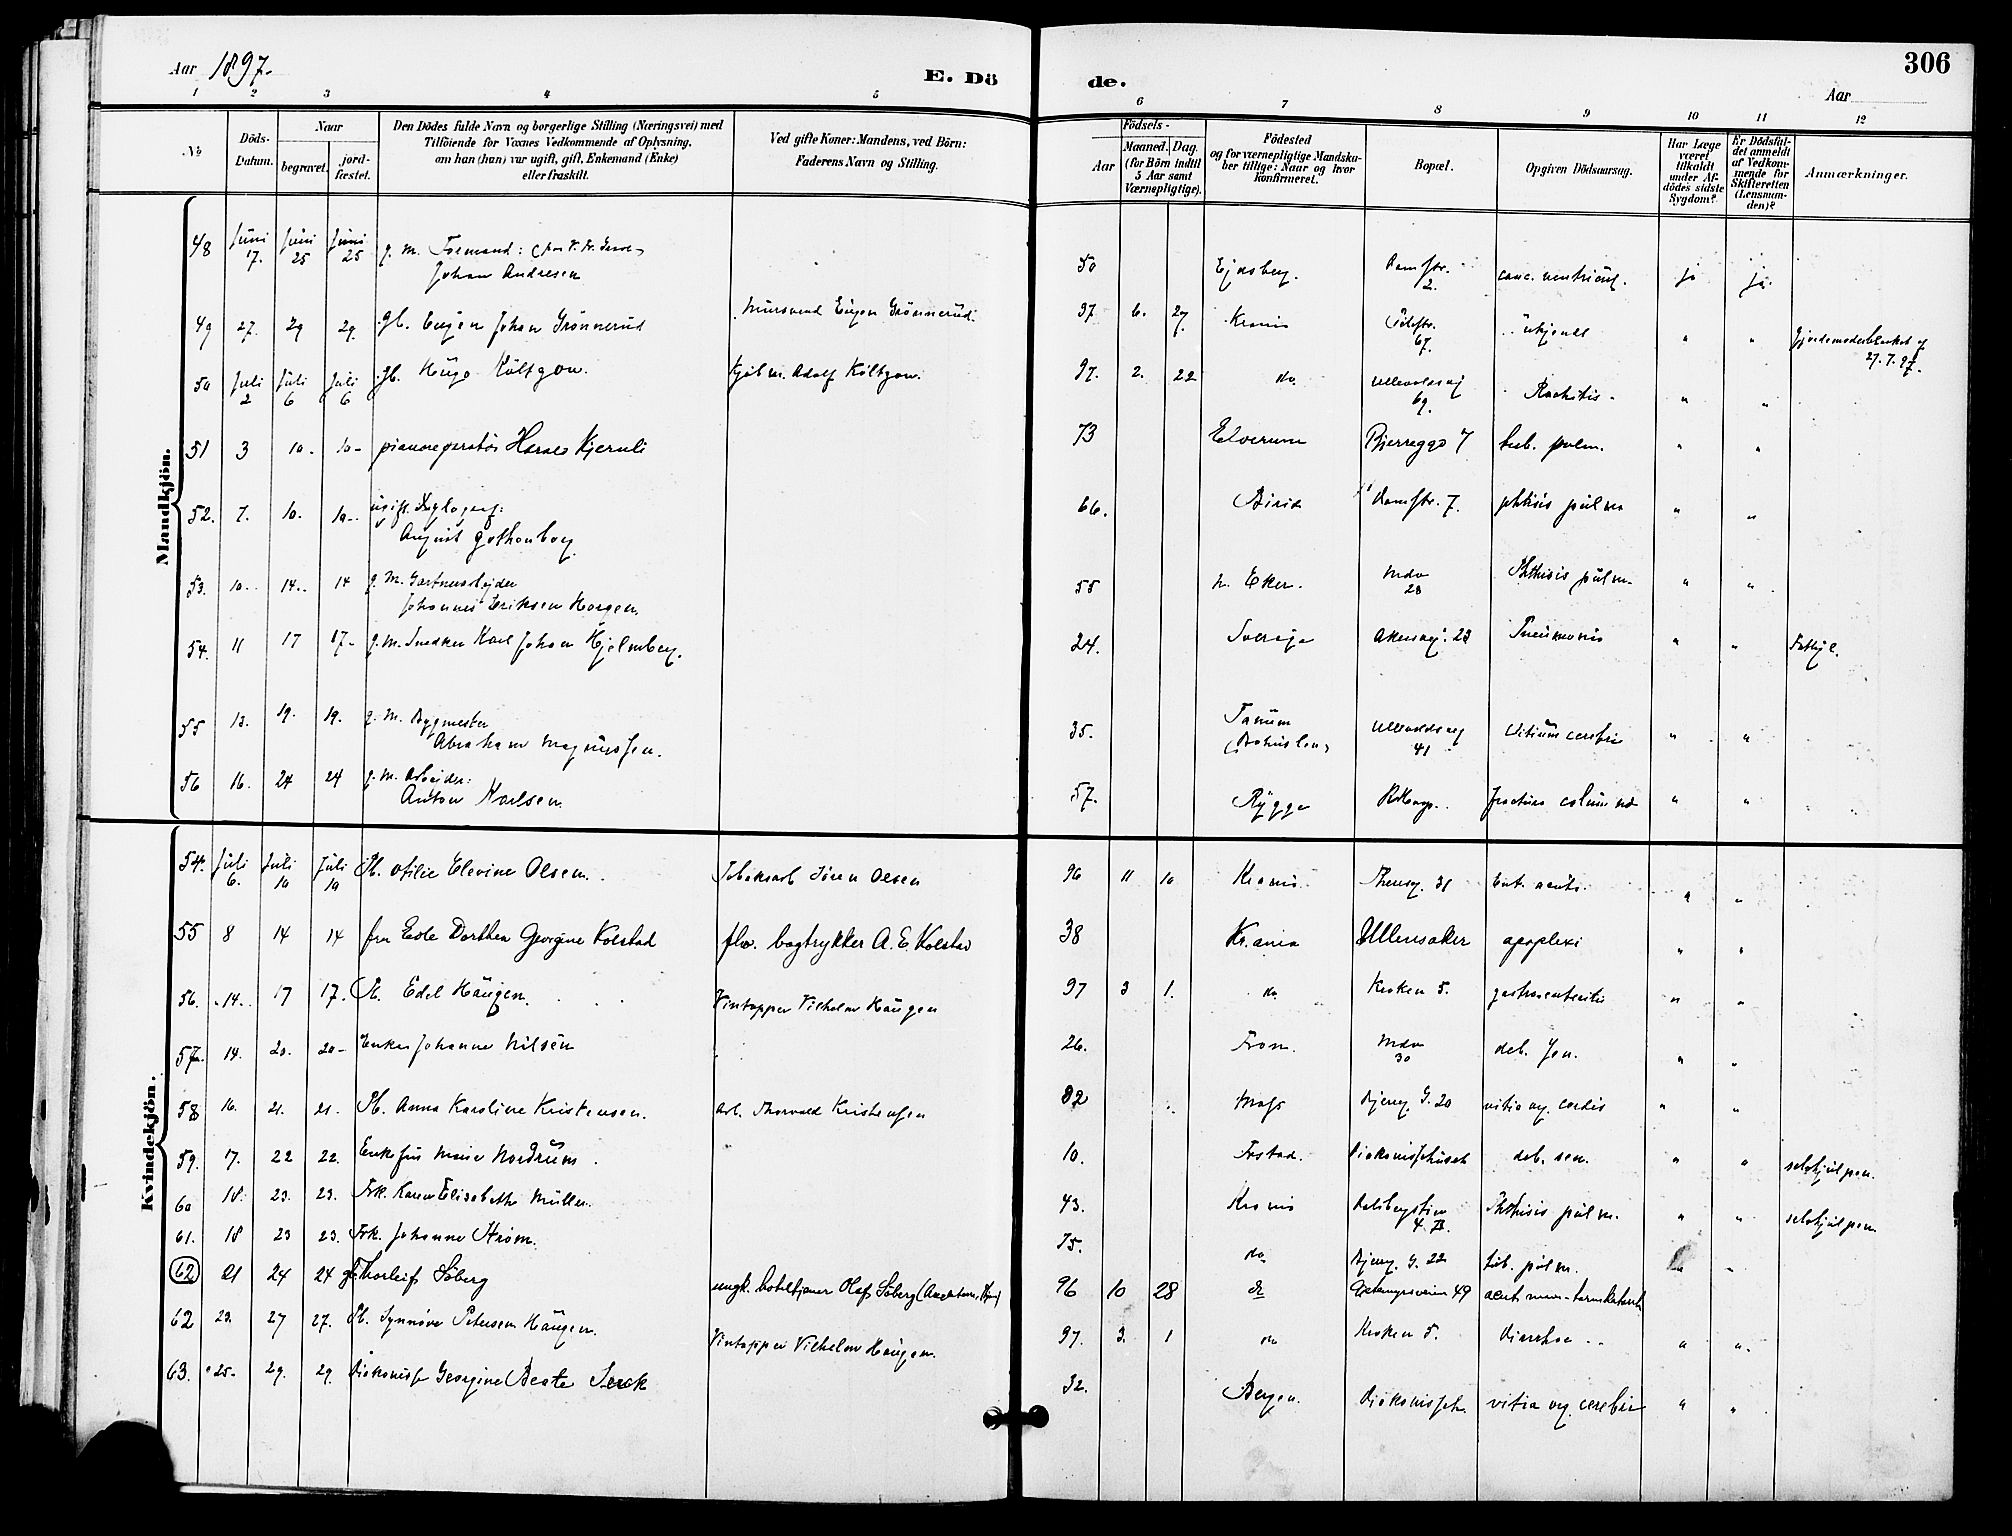 306
Aar 1897.
E. Dö de.
Aar
1 2 3 4 5 6 7 8 9 10 11 12
No
Döds-Datum.
Naar
begravet.
jord-fæstet.
Den Dödes fulde Navn og borgerlige Stilling (Næringsvei) med
Tilföiende for Voxnes Vedkommende af Oplysning,
om han (hun) var ugift, gift, Enkemand (Enke)
eller fraskilt.
Ved gifte Koner: Mandens, ved Börn:
Faderens Navn og Stilling.
Födsels-
Aar
Maaned. Dag.
(for Börn indtil
5 Aar samt
Værnepligtige).
Födested
og for værnepligtige Mandska-
ber tillige: Naar og hvor
konfirmeret.
Bopæl.
Opgiven Dödsaarsag.
Har Læge
været
tilkaldt
under Af-
dödes sidste
Sygdom?
Er Dödsfal-
det anmeldt
af Vedkom-
mende for
Skifteretten
(Lensman-
den)?
Anmærkninger.
Mandkjön.
48 Juni 17. Juni 25 Juni 25 g. m. Formand:
Johan Andresen 50 Ejdsberg. Damstr. 2. canc. ventricul. ja ja.
49 27. 29 29. gb. Eugen Johan Grönnerud Mursvend Eugen Grönnerud. 97 6. 27 Krania Pilestr. 67. ukjendt " "
27.7.97.
50 Juli 2 Juli 6 Juli 6 gb. Hugo Költzow. Adolf Költzow. 97. 2. 22 do Ullevoldsvej 69. Rachitis. " "
51 3 10. 10. pianoreparatör Harald Kjernli 73 Elverum Bjerreggd 7 tub. pulm. " "
52. 7. 10. 10. ugift
August Gothenborg 66. Birid Damstr. 7. phtisis pulm " "
53. 10. 14. 14 g. m. Gartnerarbejder
Johannes Eriksen Horgen. 55 n. Eker. Mdv 28 Phthisis pulm. " "
54. 11 17 17. g. m. Snedker Karl Johan Hjelmberg. 24. Sverige Akersvej. 23 Pneumonia " " Fathjl.
55 13. 19. 19. g. m. Bygmester
Abraham Magnussen. 35. Tanum (Bohuslen) Ullevoldsvej 41 Vitium cerebri " "
56 16. 24 24 g. m. Arbejder:
Anton Karlsen. 57. Rygge fractura column " "
Kvindekjön.
54. Juli 6. Juli 10 Juli 10 Pb. Otilie Elevine Olsen. Tobaksarb Sören Olsen 96 11 10 Krania. Theresg. 31 Ent. acuta. " "
55 8 14 14 fru Edle Dorthea Georgine Kolstad fhv. bogtrykker A. E. Kolstad 38 Kr.ania Ullensaker apoplexi " "
56. 14. 17 17. Pb. Edel Haugen. Vintapper Vilhelm Haugen 97 3 1. do Kroken 5. gastroenterite " "
57. 14. 20. 20. Enke Johanne Nilsen 26. Trom. Mdv 30 deb. sen. " "
58 16. 21. 21. Pb. Anna Karoline Kristensen. Arb. Thorvald Kristensen 82 Moss Bjerreg. G. 20 vitia org. cordis " "
59. 17. 22 22. Enkefru Marie Nordrum. 10. Fr.stad. Diakonissehuset deb. sen. " " selvhjulpen.
60 18. 23. 23. Frk. Karen Elisabeth Müller. 43. Krania Dalsbergstien 4. B. Phthisis pulm. " " selvhjulpen
61. 18 23 23. Frk. Johanne Strøm. 75. do Bjerreg. G. 22 tub. pulm. " "
62 21 24 24 gb. Thorleif Söberg ungk. hoteltjener Olaf Söberg 96 10 28 do 49
62 23. 27 27. Pb. Synnöve Petersen Haugen. Vintapper Vilhelm Haugen. 97. 3. 1 do Kroken 5. Diarrhoe " "
63. 25. 29. 29. Diakonisse Georgine Beate Serck 32. Bergen. Diakonisseh. vitia org. cerebri " "